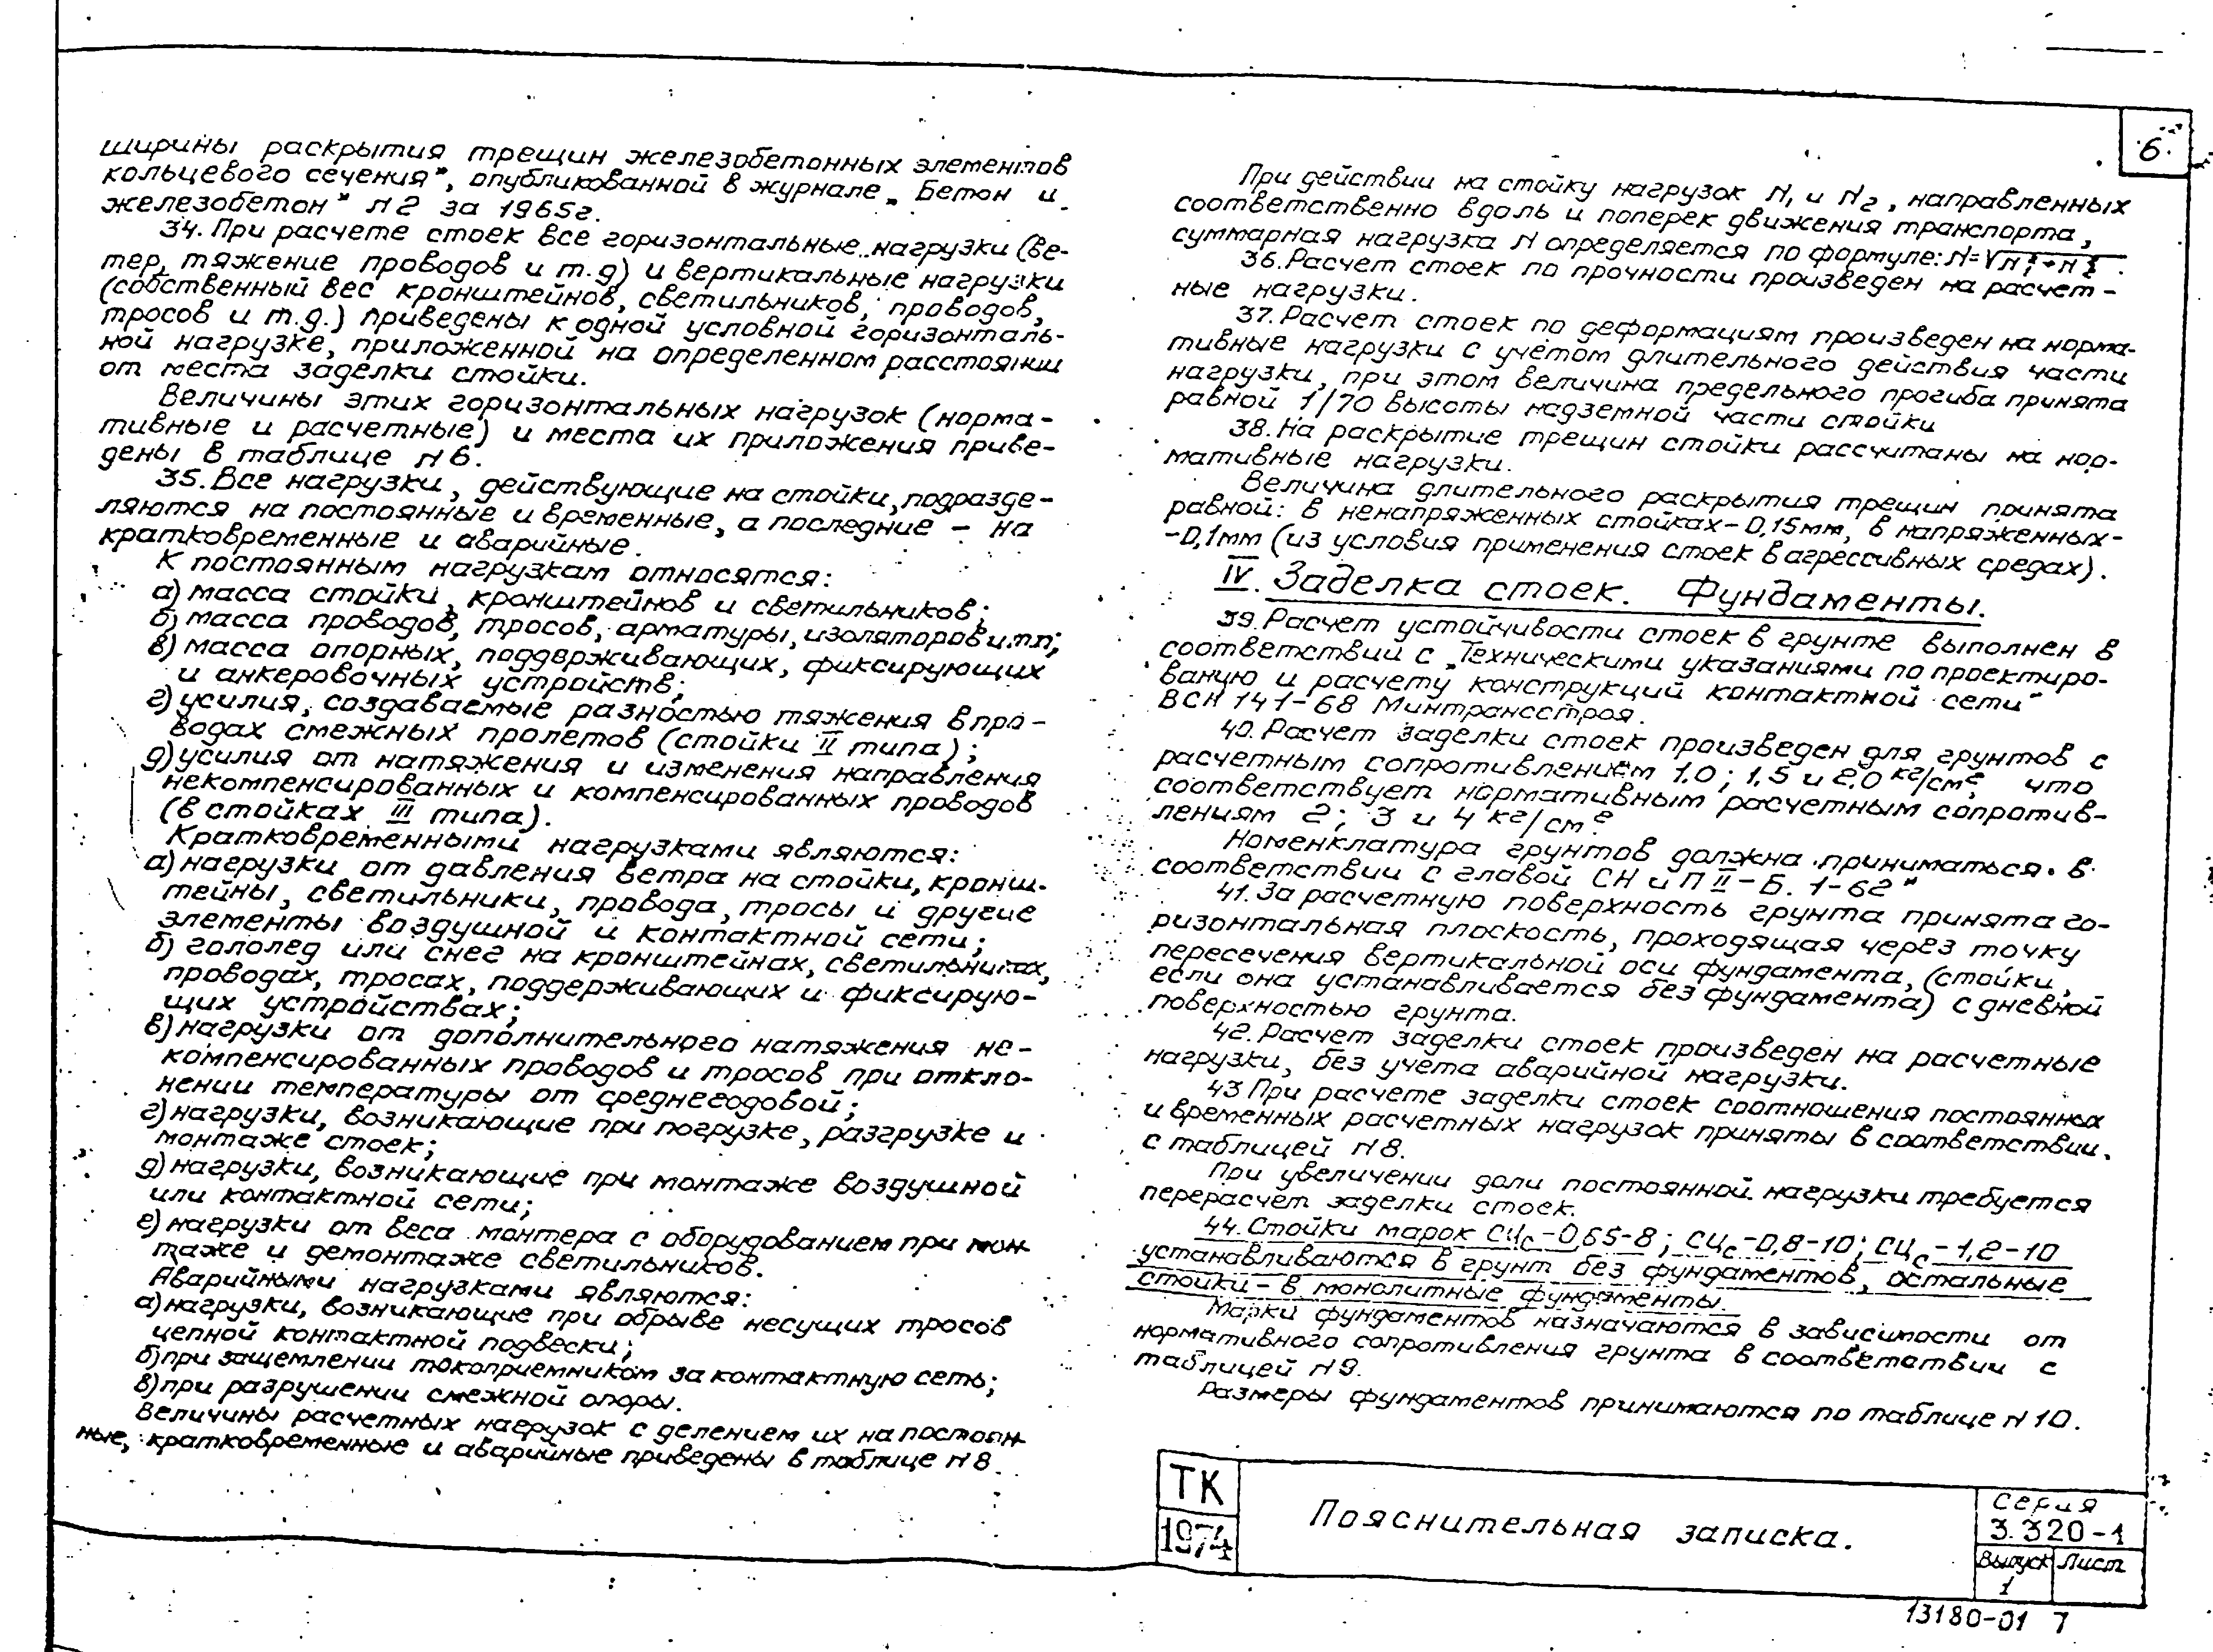 ширины раскрытия трещин железобетонных элементов
кольцевого сечения", опубликованной в журнале „Бетон и
железобетон" N2 за 1965г.
34. При расчете стоек все горизонтальные нагрузки (ве-
тер, тяжение проводов и т.д) и вертикальные нагрузки
(собственный вес кронштейнов, светильников, проводов,
тросов и т.д.) приведены к одной условной горизонталь-
ной нагрузке, приложенной на определенном расстоянии
от места заделки стойки.
Величины этих горизонтальных нагрузок (норма-
тивные и расчетные) и места их приложения приве-
дены в таблице N6.
35. Все нагрузки, действующие на стойки, подразде-
ляются на постоянные и временные, а последние - на
кратковременные и аварийные.
К постоянным нагрузкам относятся:
а) масса стойки, кронштейнов и светильников;
б) масса проводов, тросов, арматуры, изоляторов и.т.п;
в) масса опорных, поддерживающих, фиксирующих
и анкеровочных устройств;
г) усилия, создаваемые разностью тяжения в про-
водах смежных пролетов (стойки II типа);
д) усилия от натяжения и изменения направления
некомпенсированных и компенсированных проводов
(в стойках III типа).
Кратковременными нагрузками являются:
а) нагрузки от давления ветра на стойки, кронш-
тейны, светильники, провода, тросы и другие
элементы воздушной и контактной сети;
б) гололед или снег на кронштейнах, светильниках,
проводах, тросах, поддерживающих и фиксирую-
щих устройствах;
в) нагрузки от дополнительного натяжения не-
компенсированных проводов и тросов при откло-
нении температуры от среднегодовой;
г) нагрузки, возникающие при погрузке, разгрузке и
монтаже стоек;
д) нагрузки, возникающие при монтаже воздушной
или контактной сети;
е) нагрузки от веса монтера с оборудованием при мон-
таже и демонтаже светильников.
Аварийными нагрузками являются:
а) нагрузки, возникающие при обрыве несущих тросов
цепной контактной подвески;
б) при защемлении токоприемником за контактную сеть;
в) при разрушении смежной опоры.
Величины расчетных нагрузок с делением их на постоян-
ные, кратковременные и аварийные приведены в таблице N8
6
При действии на стойку нагрузок N₁ и N₂, направленных
соответственно вдоль и поперек движения транспорта,
суммарная нагрузка N определяется по формуле: N=√N₁²+N₂².
36. Расчет стоек по прочности произведен на расчет-
ные нагрузки.
37. Расчет стоек по деформациям произведен на норма-
тивные нагрузки с учётом длительного действия части
нагрузки, при этом величина предельного прогиба принята
равной 1/70 высоты надземной части стойки
38. На раскрытие трещин стойки рассчитаны на нор-
мативные нагрузки.
Величина длительного раскрытия трещин принята
равной: в ненапряженных стойках-0,15мм, в напряженных-
-0,1мм (из условия применения стоек в агрессивных средах).
IV. Заделка стоек. Фундаменты.
39. Расчет устойчивости стоек в грунте выполнен в
соответствии с „Техническими указаниями по проектиро-
ванию и расчету конструкций контактной сети"
ВСН 141-68 Минтрансстроя.
40. Расчет заделки стоек произведен для грунтов с
расчетным сопротивлением 1,0; 1,5 и 2,0 кг/см², что
соответствует нормативным расчетным сопротив-
лениям 2; 3 и 4 кг/см².
Номенклатура грунтов должна приниматься в
соответствии с главой СН и П II-Б. 1-62"
41. За расчетную поверхность грунта принята го-
ризонтальная плоскость, проходящая через точку
пересечения вертикальной оси фундамента, (стойки,
если она устанавливается без фундамента) с дневной
поверхностью грунта.
42. Расчет заделки стоек произведен на расчетные
нагрузки, без учета аварийной нагрузки.
43 При расчете заделки стоек соотношения постоянных
и временных расчетных нагрузок приняты в соответствии.
с таблицей N8.
При увеличении доли постоянной нагрузки требуется
перерасчет заделки стоек.
44. Стойки марок СЦс-0,65-8; СЦс-0,8-10; СЦс-1,2-10
устанавливаются в грунт без фундаментов, остальные
стойки - в монолитные фундаменты.
Марки фундаментов назначаются в зависимости от
нормативного сопротивления грунта в соответствии с
таблицей N9.
Размеры фундаментов принимаются по таблице N10.
ТК
1974
Пояснительная записка.
Серия
3.320-1
Выпуск
1
Лист
13180-01 7